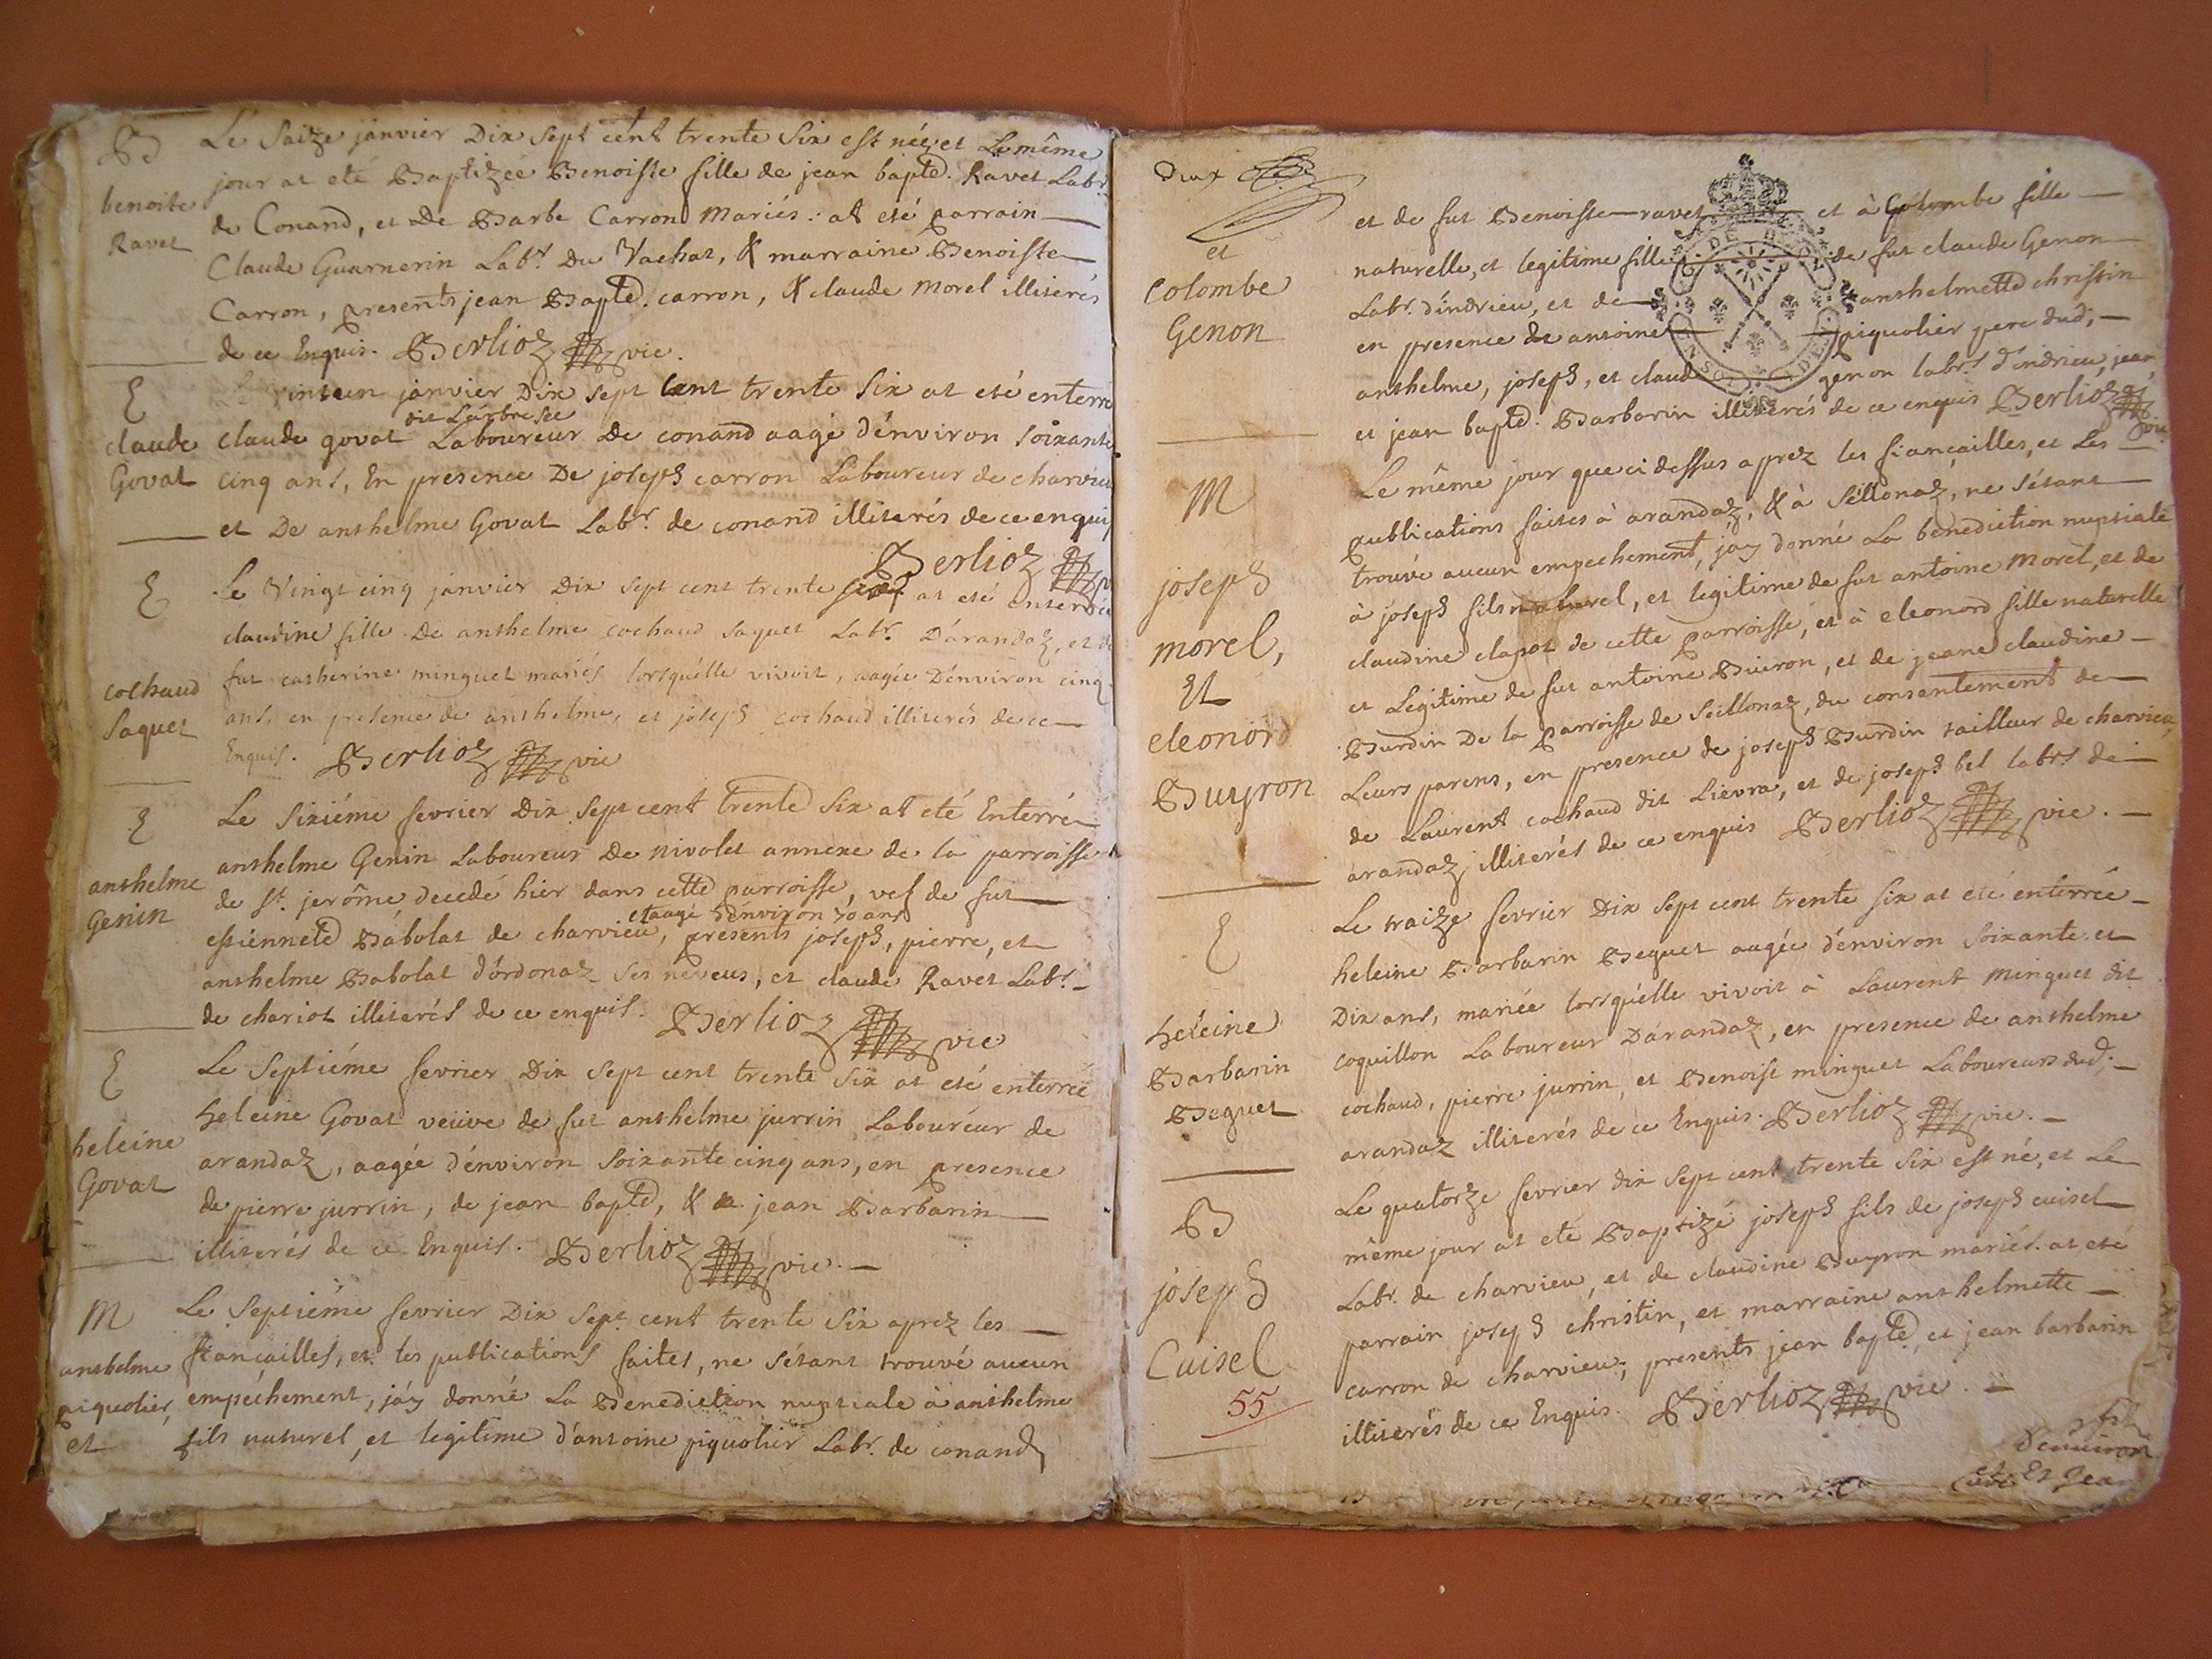 B
benoite
Ravet
Le Saize janvier Dix sept cent trente Six est née, et Le même
jour at eté Baptizée Benoiste fille de jean bapte. Ravet Labr.
de Conand, et De Barbe Carron Mariés. at eté parrain
Claude Guarnerin Labr. Du Vachat, & marraine Benoiste
Carron, presents jean Bapte. carron, & claude Morel illiterés
de ce Enquis. Berlioz vic.
E
claude
Govat
Le vintun janvier Dix sept cent trente Six at eté enterré
claude govat Laboureur De conand aagé d'énviron soixante
cinq ans, En presence De joseph carron Laboureur de charvieu
et De anthelme Govat Labr. de conand illiterés de ce enquis
Berlioz
E
cochaud
Saquet
Le Vingt cinq janvier Dix sept cent trente six at eté enterrée
claudine fille De anthelme cochaud saquet Labr. D'arandaz, et de
fut catherine minguet mariés lorsquélle vivoit, aagée D'énviron cinq
ans, en presence de anthelme, et joseph cochaud illiterés de ce
Enquis. Berlioz vic
E
anthelme
Genin
Le Sixiéme fevrier Dix Sept cent trente Six at eté Enterré
anthelme Genin Laboureur De nivolet annexe de la parroisse
de St. jerôme decedé hier dans cette parroisse, vef de fut
estiennete Babolat de charvieu, et aagé d'énviron 70 ans presents joseph, pierre, et
anthelme Babolat d'órdonaz ses neveus, et claude Ravet Labr.
de chariot illiterés de ce enquis. Berlioz vic
E
heleine
Govat
Le Septiéme fevrier Dix Sept cent trente Six at eté enterrée
heleine Govat veüve de fut anthelme jurrin Laboureur de
arandaz, aagée d'énviron soixante cinq ans, en presence
de pierre jurrin, de jean bapte, & jean Barbarin
illiterés de ce Enquis. Berlioz vic.
M
anthelme
piquolier,
et
Le Septiéme fevrier Dix Sept cent trente Six aprez les
fiancailles, et les publications faites, ne s'étant trouvé aucun
empéchement, j'áy donné La Benediction nuptiale à anthelme
fils naturel, et legitime d'ántoine piquolier Labr. de conand
Deux
et
Colombe
Genon
et de fut Benoiste ravet et à Colombe fille
naturelle, et legitime fille de fut claude Genon
Labr. d'índrieu, et de anthelmette christin
en presence de antoine piquolier pere dud;
anthelme, joseph, et claude genon labrs. d'indrieu, jean,
et jean bapte. Barbarin illiterés de ce enquis Berlioz vic
M
joseph
morel,
Et
eleonord
Buyron
Le même jour que ci dessus aprez les fiançailles, et Les
publications faites à arandaz, & à Séillonaz, ne s'étant
trouvé aucun empechement, j'ay donné La benediction nuptiale
à joseph fils naturel, et legitime de fut antoine Morel, et de
claudine clapot de cette parroisse, et à eleonord fille naturelle
et Legitime de fut antoine Buiron, et de jeane claudine
Burdin De la parroisse de Seillonaz, du consentement de
Leurs parens, en presence de joseph Burdin tailleur de charvieu,
de Laurent cochaud dit Lievra, et de joseph bel labrs. de
arandaz illiterés de ce enquis Berlioz vic.
E
heleine
Barbarin
Beguet
Le traize fevrier Dix Sept cent trente six at eté enterrée
heleine Barbarin Beguet aagée d'énviron soixante et
Dix ans, mariée lorsquélle vivoit à Laurent Minguet dit
coquillon Laboureur D'arandaz, en presence de anthelme
cochaud, pierre jurrin, et Benoist minguet Laboureurs dud;
arandaz illiterés de ce Enquis. Berlioz vic.
B
joseph
Cuisel
55
Le quatorze fevrier dix sept cent trente six est né, et Le
même jour at eté Baptizé joseph fils de joseph cuisel
Labr. de charvieu, et de claudine Buyron mariés. at eté
parrain joseph christin, et marraine anthelmette
carron de charvieu; presents jean bapte, et jean barbarin
illiterés de ce Enquis. Berlioz vic.
Denuiron
Et Jean